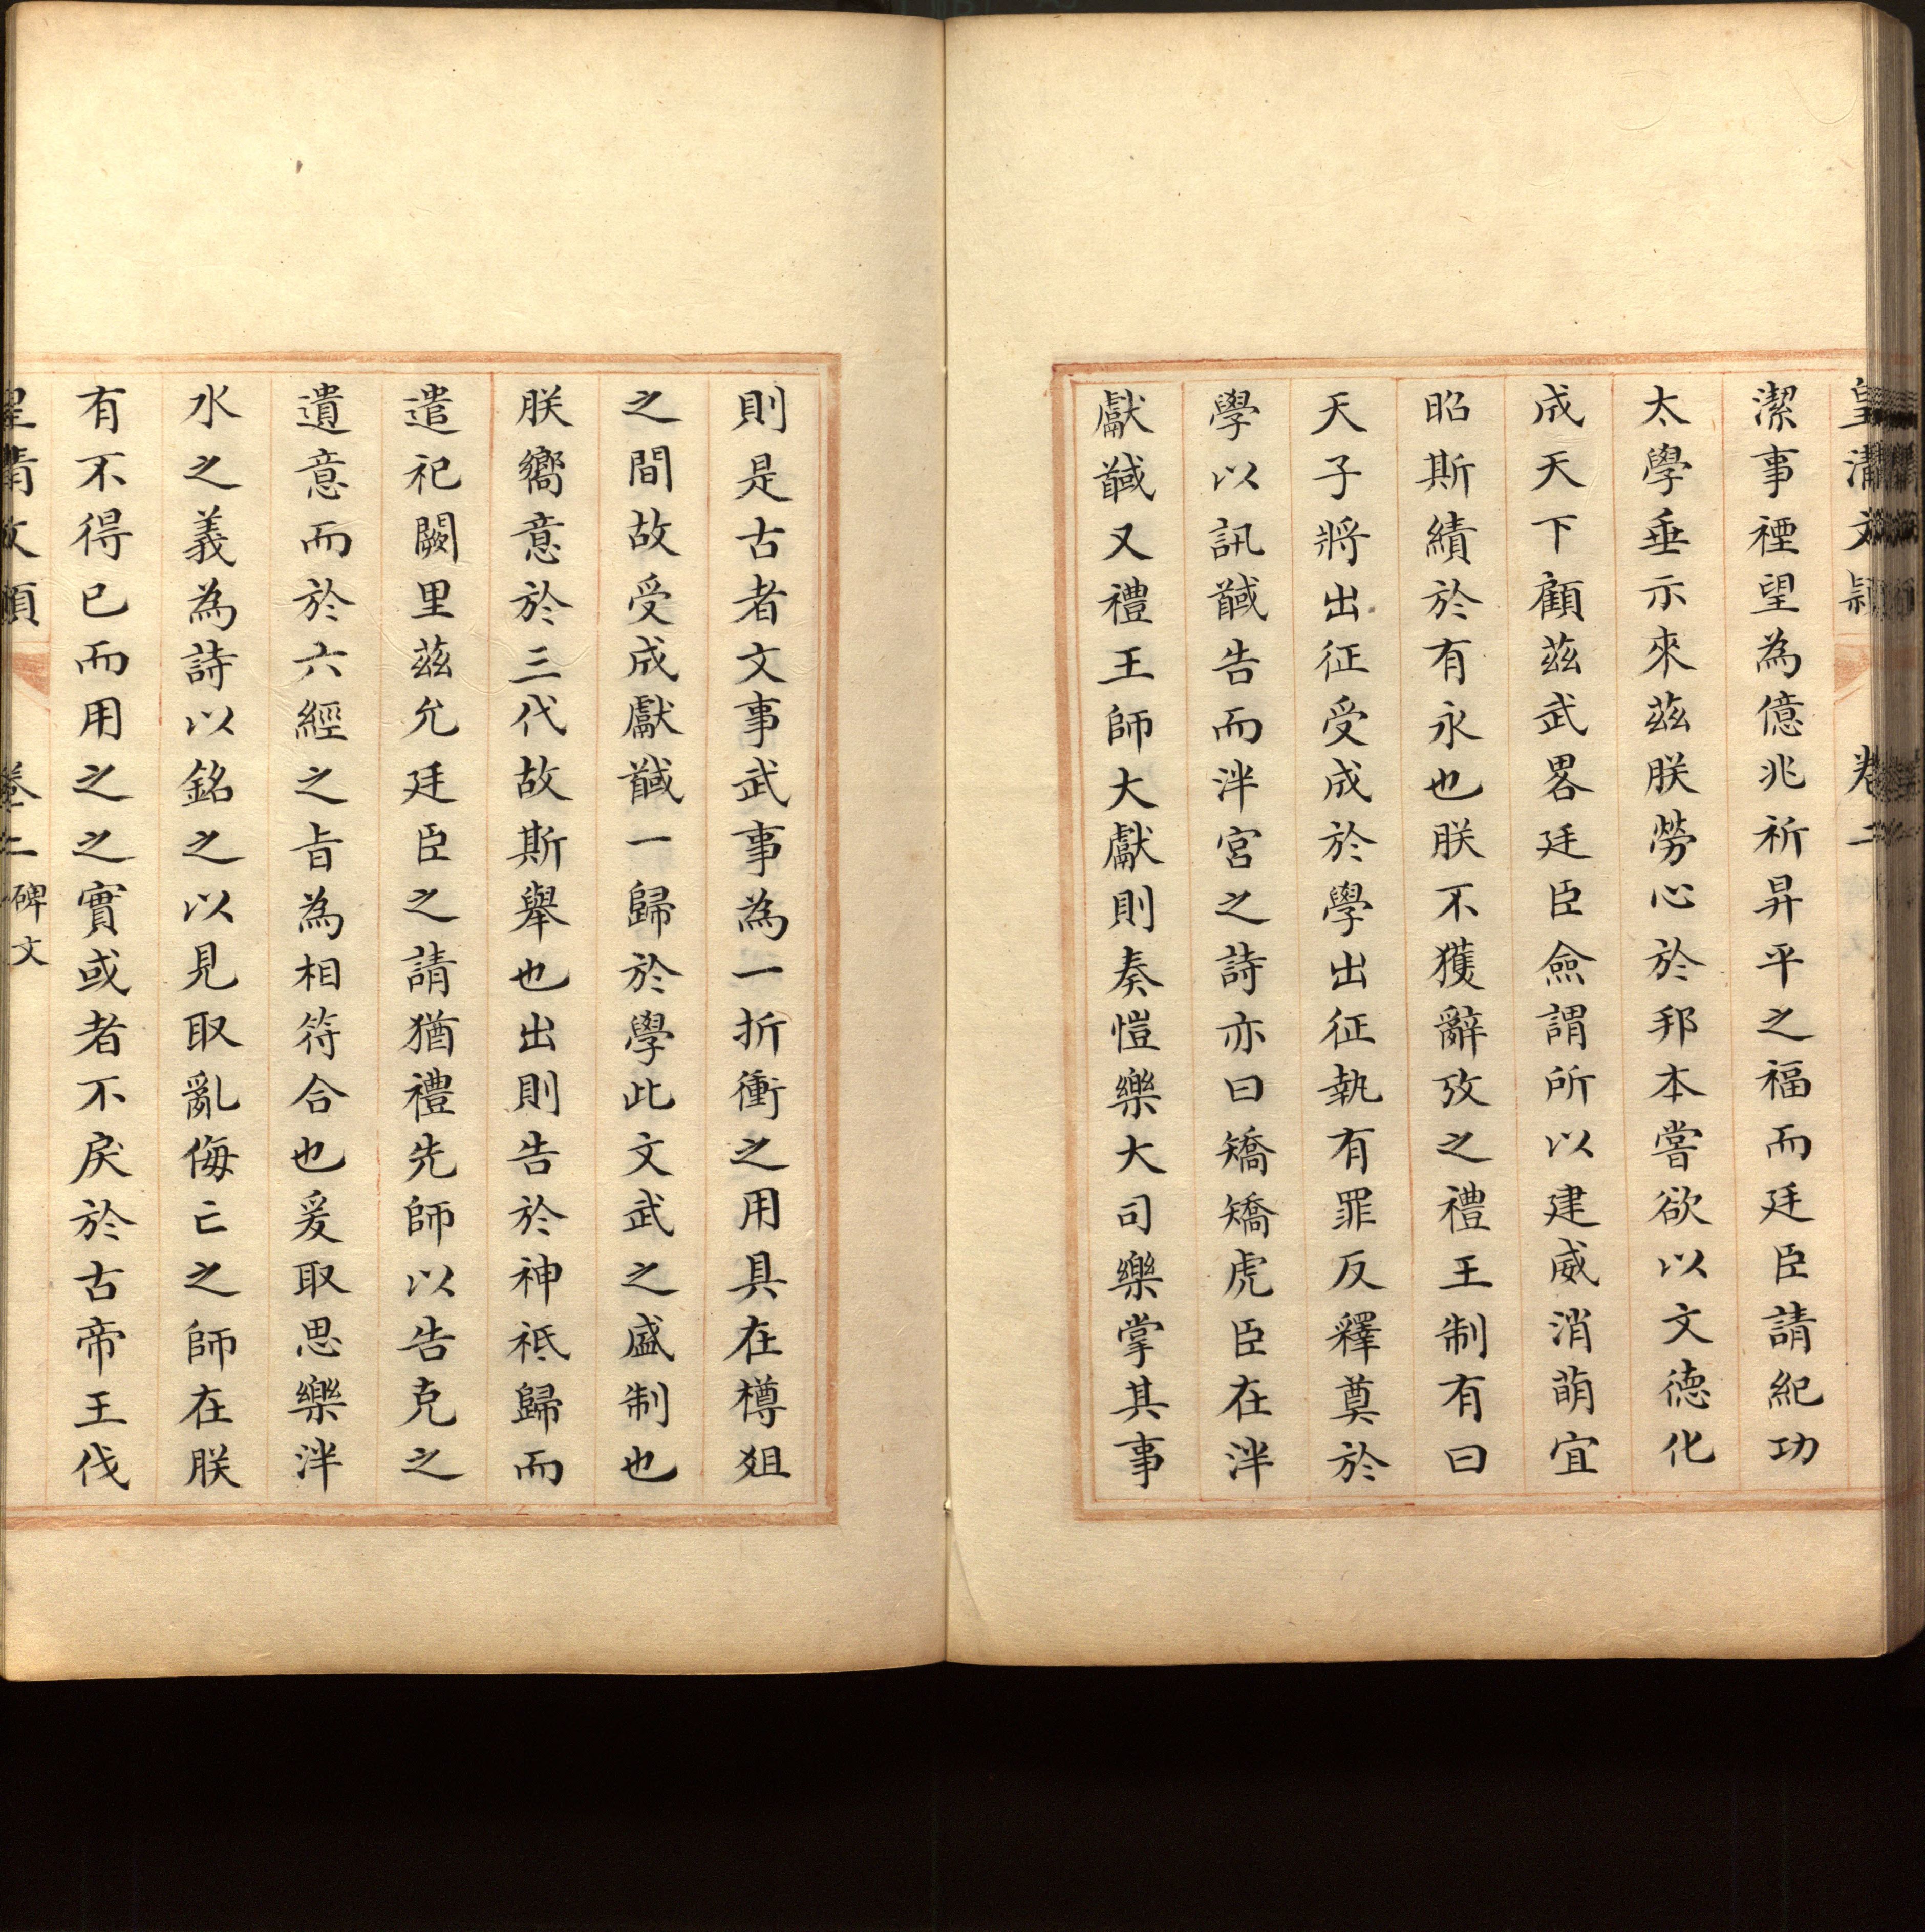 皇清文穎 卷二
潔事禋望為億兆祈昇平之福而廷臣請紀功
太學垂示來茲朕勞心於邦本嘗欲以文德化
成天下顧茲武畧廷臣僉謂所以建威消萌宜
昭斯績於有永也朕不獲辭攷之禮王制有曰
天子將出征受成於學出征執有罪反釋奠於
學以訊馘告而泮宮之詩亦曰矯矯虎臣在泮
獻馘又禮王師大獻則奏愷樂大司樂掌其事
則是古者文事武事為一折衝之用具在樽俎
之間故受成獻馘一歸於學此文武之盛制也
朕嚮意於三代故斯舉也出則告於神祗歸而
遣祀闕里茲允廷臣之請猶禮先師以告克之
遺意而於六經之旨為相符合也爰取思樂泮
水之義為詩以銘之以見取亂侮亡之師在朕
有不得已而用之之實或者不戾於古帝王伐
皇清文穎 卷二 碑文